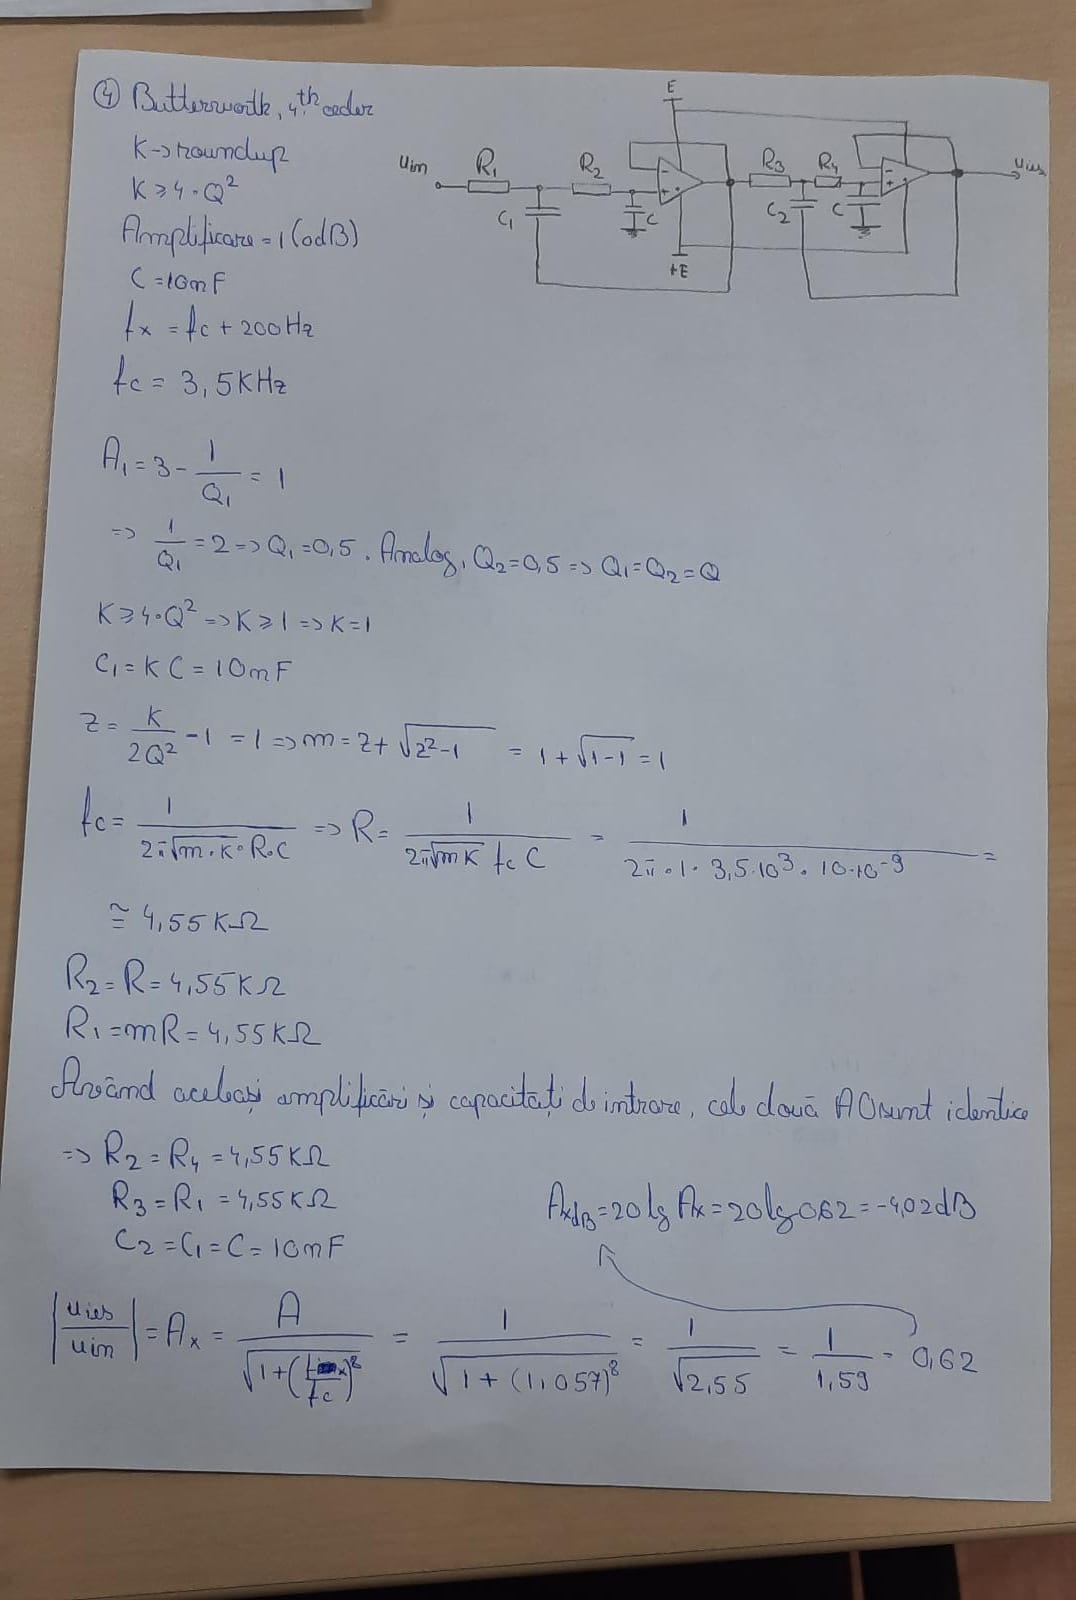 ④ Butterworth, 4th order
K → roundup
K ≥ 4·Q²
Amplificare = 1 (0dB)
C = 10nF
fx = fc + 200Hz
fc = 3,5KHz
E
uin
R1
R2
C1
C
+E
R3
R4
C2
C
uies
A1 = 3 - 1/Q1 = 1
=> 1/Q1 = 2 => Q1 = 0,5. Analog, Q2 = 0,5 => Q1 = Q2 = Q
K ≥ 4·Q² => K ≥ 1 => K = 1
C1 = K C = 10nF
z = K/2Q² - 1 = 1 => m = z + √(z²-1) = 1 + √(1-1) = 1
fc = 1/(2π√(m·K)·R·C) => R = 1/(2π√(mK) fc C) = 1/(2π·1·3,5·10³·10·10⁻⁹) =
≅ 4,55 KΩ
R2 = R = 4,55KΩ
R1 = mR = 4,55KΩ
Având aceleași amplificări și capacități de intrare, cele două AO sunt identice
=> R2 = R4 = 4,55KΩ
R3 = R1 = 4,55KΩ
C2 = C1 = C = 10nF
AxdB = 20lg Ax = 20lg 0,62 = -4,02dB
|uies/uin| = Ax = A/√(1+(fx/fc)⁸) = 1/√(1+(1,057)⁸) = 1/√2,55 = 1/1,59 = 0,62